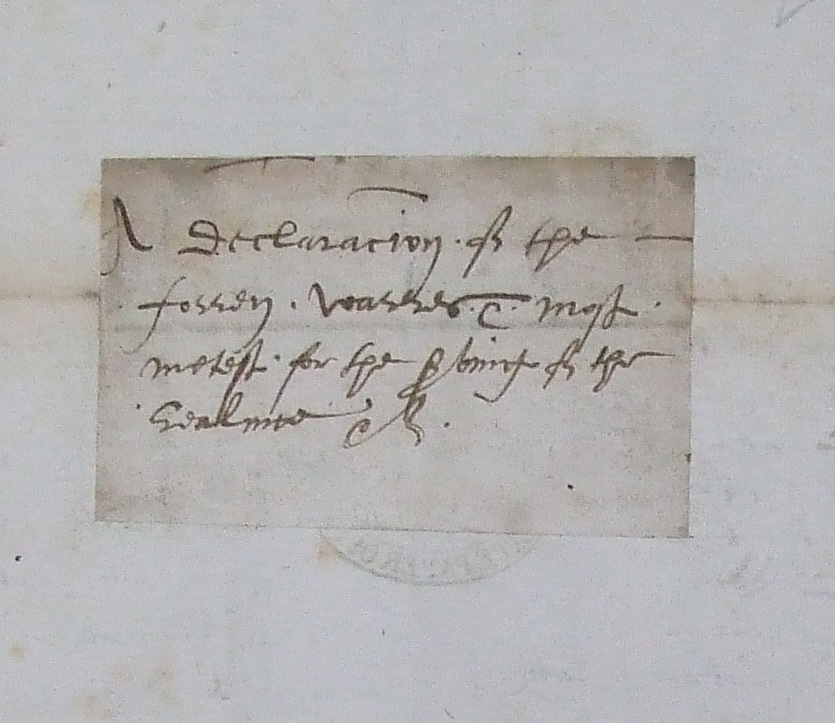 A declaracion of the
forren warres & most
metest for the of the
Realme &c.